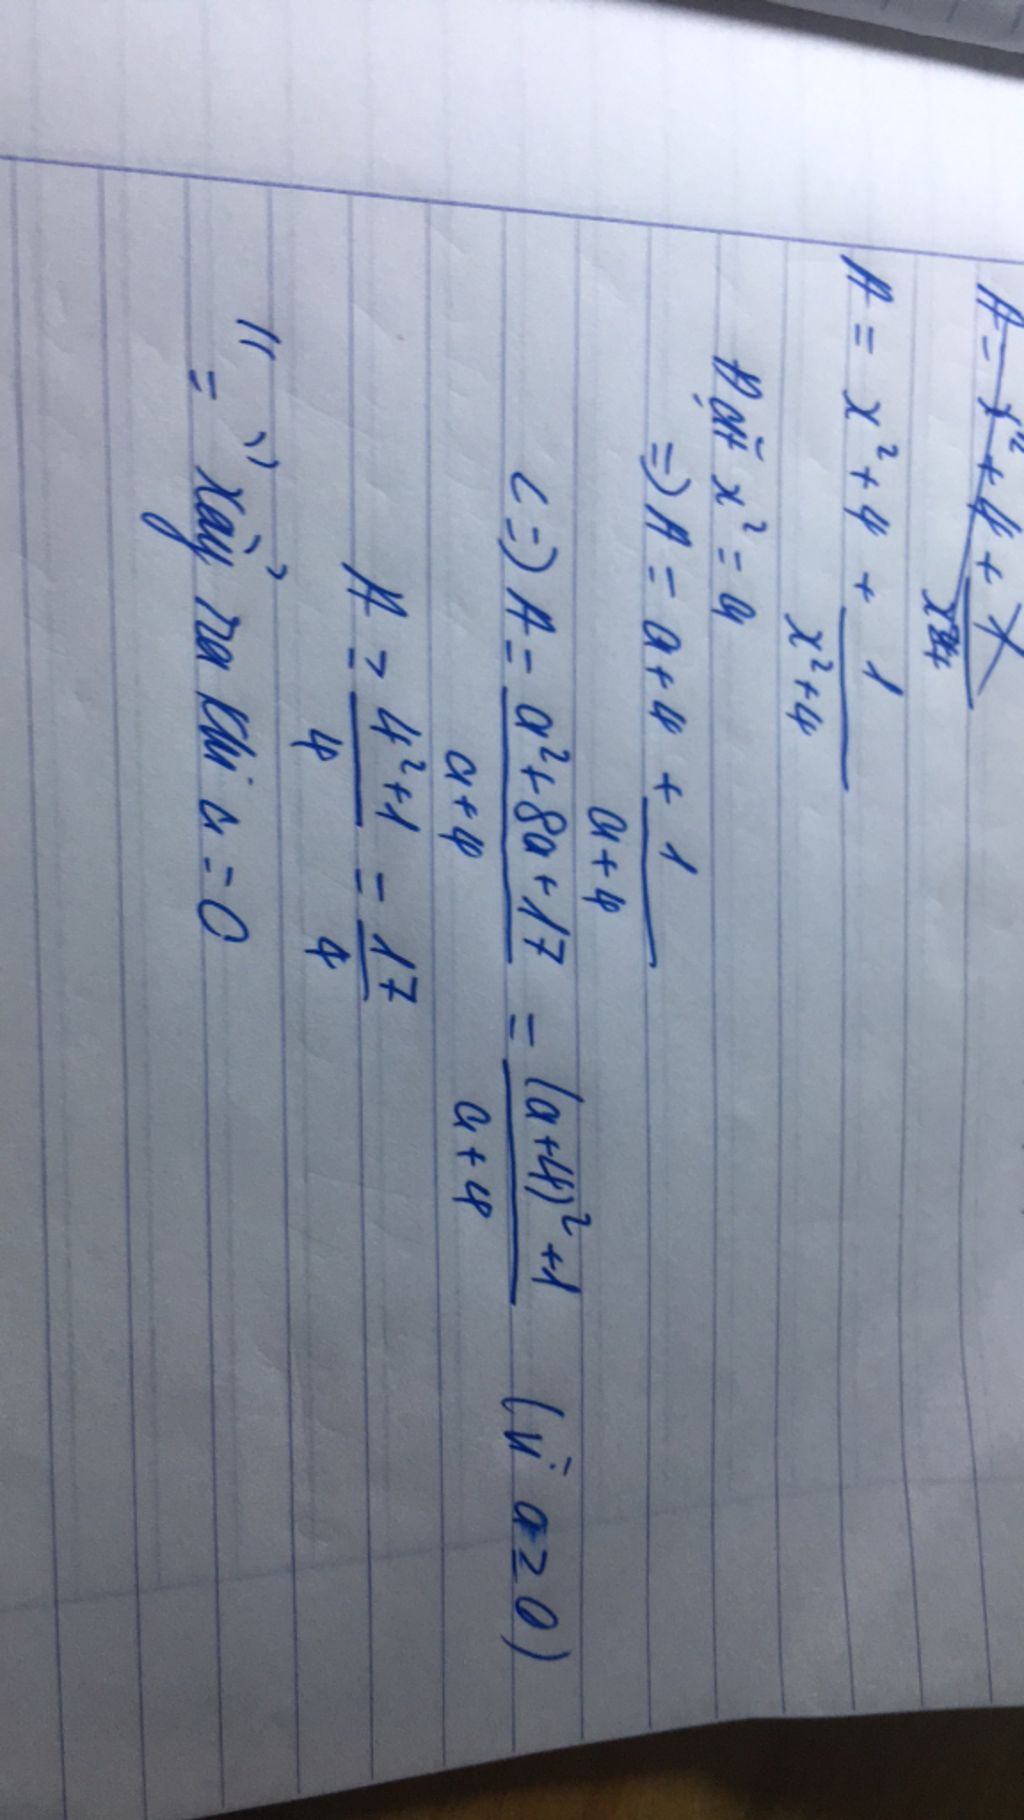 A = x² + 4 + 1/(x²+4)
Đặt x² = a
=> A = a + 4 + 1/(a+4)
<=> A = (a² + 8a + 17)/(a+4) = ((a+4)² + 1)/(a+4) (vì a ≥ 0)
A ≥ (4² + 1)/4 = 17/4
"=" xảy ra khi a = 0